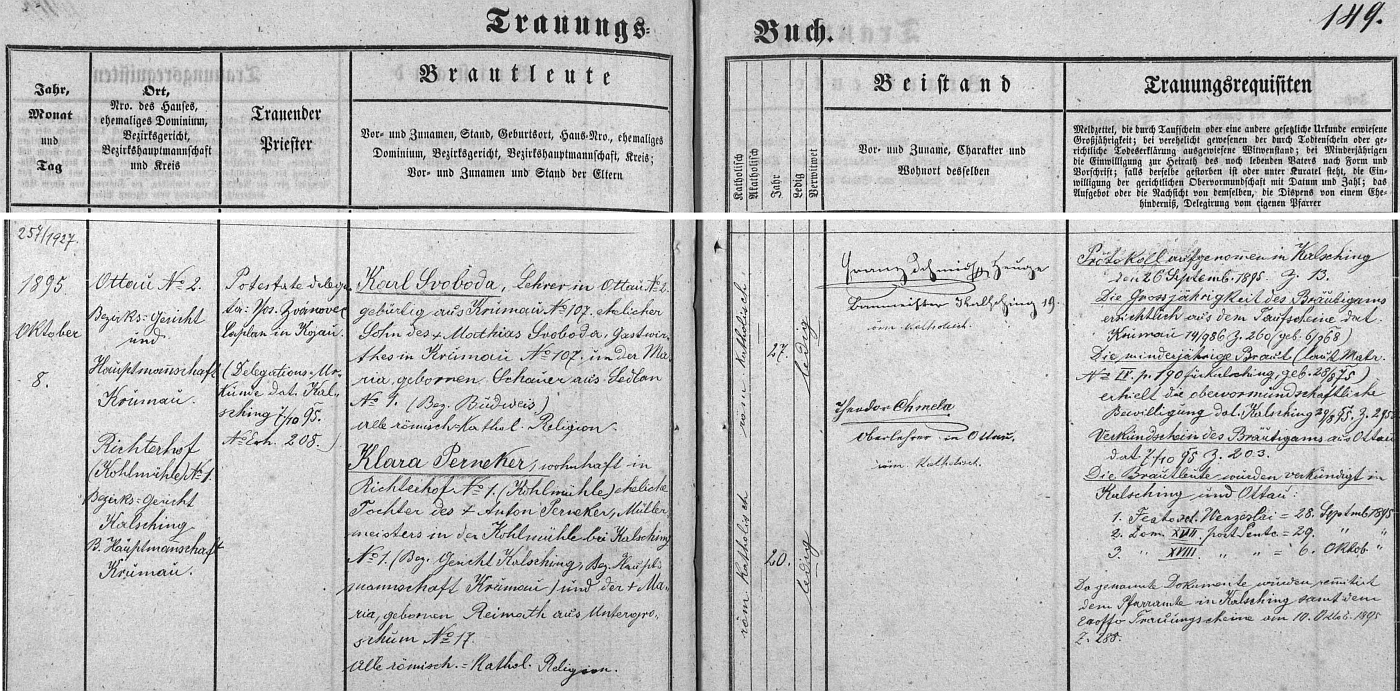 Trauungs-
Buch.
149.
Jahr,
Monat
und
Tag
Ort,
Nro. des Hauses,
ehemaliges Dominium,
Bezirksgericht,
Bezirkshauptmannschaft
und Kreis
Trauender
Priester
Brautleute
Vor- und Zunamen, Stand, Geburtsort, Haus-Nro., ehemaliges
Dominium, Bezirksgericht, Bezirkshauptmannschaft, Kreis;
Vor- und Zunamen und Stand der Eltern
Katholisch
Akatholisch
Jahr
Ledig
Verwitwet
Beistand
Vor- und Zuname, Charakter und
Wohnort desselben
Trauungsrequisiten
Meldzettel, die durch Taufschein oder eine andere gesetzliche Urkunde erwiesene
Großjährigkeit; bei verehelicht gewesenen der durch Todtenschein oder ge-
richtliche Todeserklärung ausgewiesene Witwenstand; bei Minderjährigen
die Einwilligung zur Heirath des noch lebenden Vaters nach Form und
Vorschrift; falls derselbe gestorben ist oder unter Kuratel steht, die Ein-
willigung der gerichtlichen Obervormundschaft mit Datum und Zahl; das
Aufgebot oder die Nachsicht von demselben, die Dispens von einem Ehe-
hinderniß, Delegirung vom eigenen Pfarrer
257/1927.
1895
Oktober
8.
Ottau No 2.
Bezirks-Gericht
und
Hauptmannschaft
Krumau.
Richterhof
(Kohlmühle) No 1.
Bezirks-Gericht
Kalsching
B. Hauptmanschaft
Krumau.
Potestate delega-
ta: Jos. Zvánovec
Kaplan in Kojau.
(Delegations-Ur-
kunde dat. Kal-
sching 7/10 95.
No Exh. 208.)
Karl Svoboda, Lehrer in Ottau No 2.
gebürtig aus Krumau No 107. ehelicher
Sohn des + Matthias Svoboda, Gastwir-
thes in Krumau No 107. und der Ma-
ria, gebornen Schauer aus Ledlan
No 1. (Bez. Budweis)
Alle römisch-kathol. Religion.
Klara Perneker, wohnhaft in
Richterhof No 1. (Kohlmühle) eheliche
Tochter des + Anton Perneker, Müller-
meisters in der Kohlmühle bei Kalsching
No 1. (Bez. Gericht Kalsching, Bez. Haupt-
mannschaft Krumau) und der + Ma-
ria, gebornen Reimath aus Untergro-
schum No 17.
Alle römisch.-kathol. Religion.
röm katholisch
27.
ledig
röm katholisch
20.
ledig
Franz Schmidt, Zeuge
Baumeister Kalsching 19.
röm katholisch.
Theodor Chmela
Oberlehrer in Ottau,
röm. katholisch.
Protokoll aufgenomen in Kalsching
den 26 Septemb. 1895. Z. 13.
Die Grossjährigkeit des Bräutigams
ersichtlich aus dem Taufscheine dat.
Krumau 14/9 86 Z. 260 (geb. 6/9 68)
Die minderjährige Braut (laut Matr.
No IV. p. 190 für Kalsching, geb. 28/8 75)
erhielt die obervormundschaftliche
Bewilligung dat. Kalsching 29/8 95. Z. 295
Verkündschein des Bräutigams aus Ottau
dat 7/10 95 Z. 203.
Die Brautleute wurden verkündigt in
Kalsching und Ottau:
1. Festo sct. Wenzeslai = 28. Septmb 1895
2. Dom XVII post Pente = 29. " "
3. " XVIII " " = 6. Oktob "
Da genannte Dokumente wurden remittirt
dem Pfarramte in Kalsching samt dem
exoffo Trauungscheine am 10. Oktob. 1895
Z. 288.